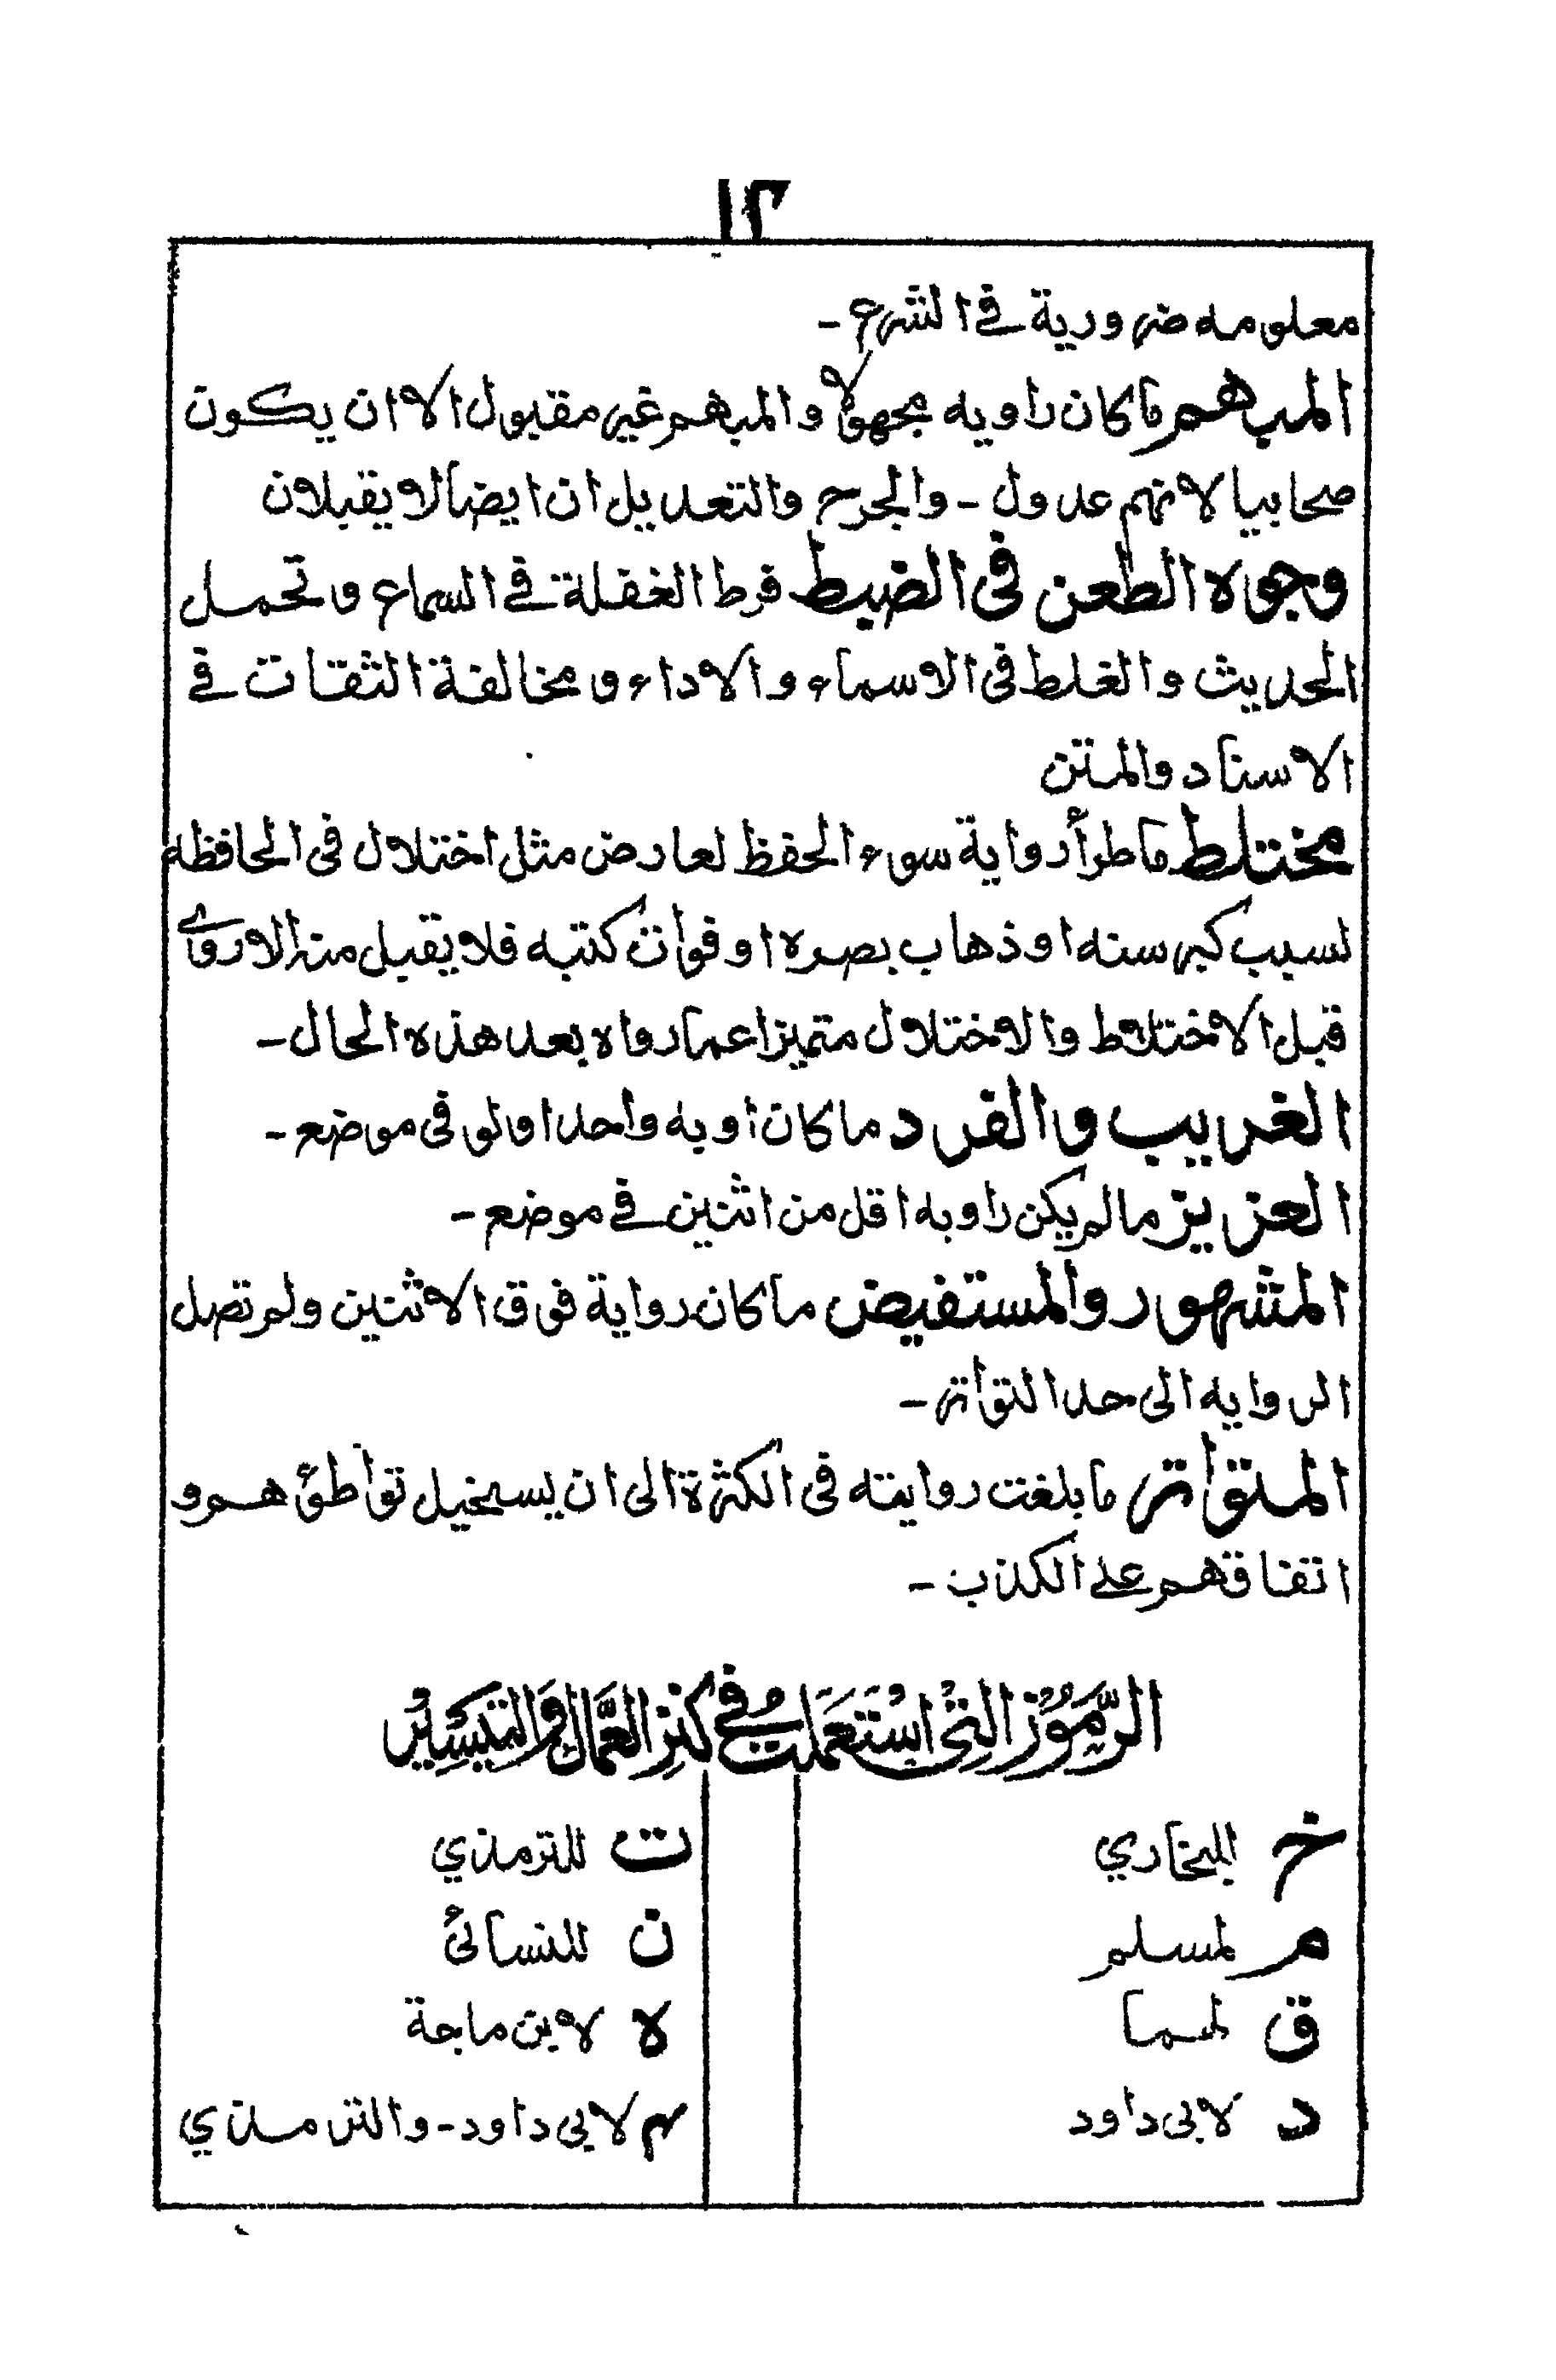 ١٢
معلومه ضرورية في الشرع -
المبهم ما كان راويه مجهولا والمبهم غير مقبول الا ان يكون
صحابيا لانهم عدول - والجرح والتعديل ان ايضا لا يقبلان
وجوه الطعن فى الضبط فرط الغفلة في السماع و تحمل
الحديث والغلط فى الاسماء والاداء و مخالفة الثقات في
الاسناد والمتن
مختلط ما طرأ رواية سوء الحفظ لعارض مثل اختلال فى الحافظه
لسبب كبر سنه او ذهاب بصره او فوات كتبه فلا يقبل منه الا روى
قبل الاختلاط والاختلال متميزا عما رواه بعد هذه الحال -
الغريب والفرد ما كان اويه واحدا ولو فى موضع -
العزيز ما لم يكن راويه اقل من اثنين في موضع -
المشهور والمستفيض ما كان رواية فوق الاثنين ولم تصل
الروايه الى حد التواتر -
المتواتر ما بلغت روايته فى الكثرة الى ان يستحيل تواطؤهم و
اتفاقهم على الكذب -
الرُّمُوْزُ الَّتِىْ اسْتَعْمَلَتُ فِي كَنْزِ العُمَّالِ وَالتَّيْسِيْرِ
خ للبخاري
ت للترمذي
م لمسلم
ن للنسائى
ق لهما
ه لابن ماجة
د لابى داود
هم لابى داود - والترمذي